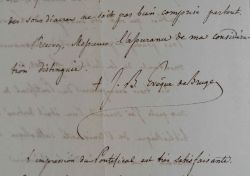 des sousdiacres ne soit pas bien compris partout.
Recevez, Messieurs, l'assurance de ma considéra-
tion distinguée.
† J. B. Evêque de Bruges
L'impression du Pontifical est très satisfaisante.